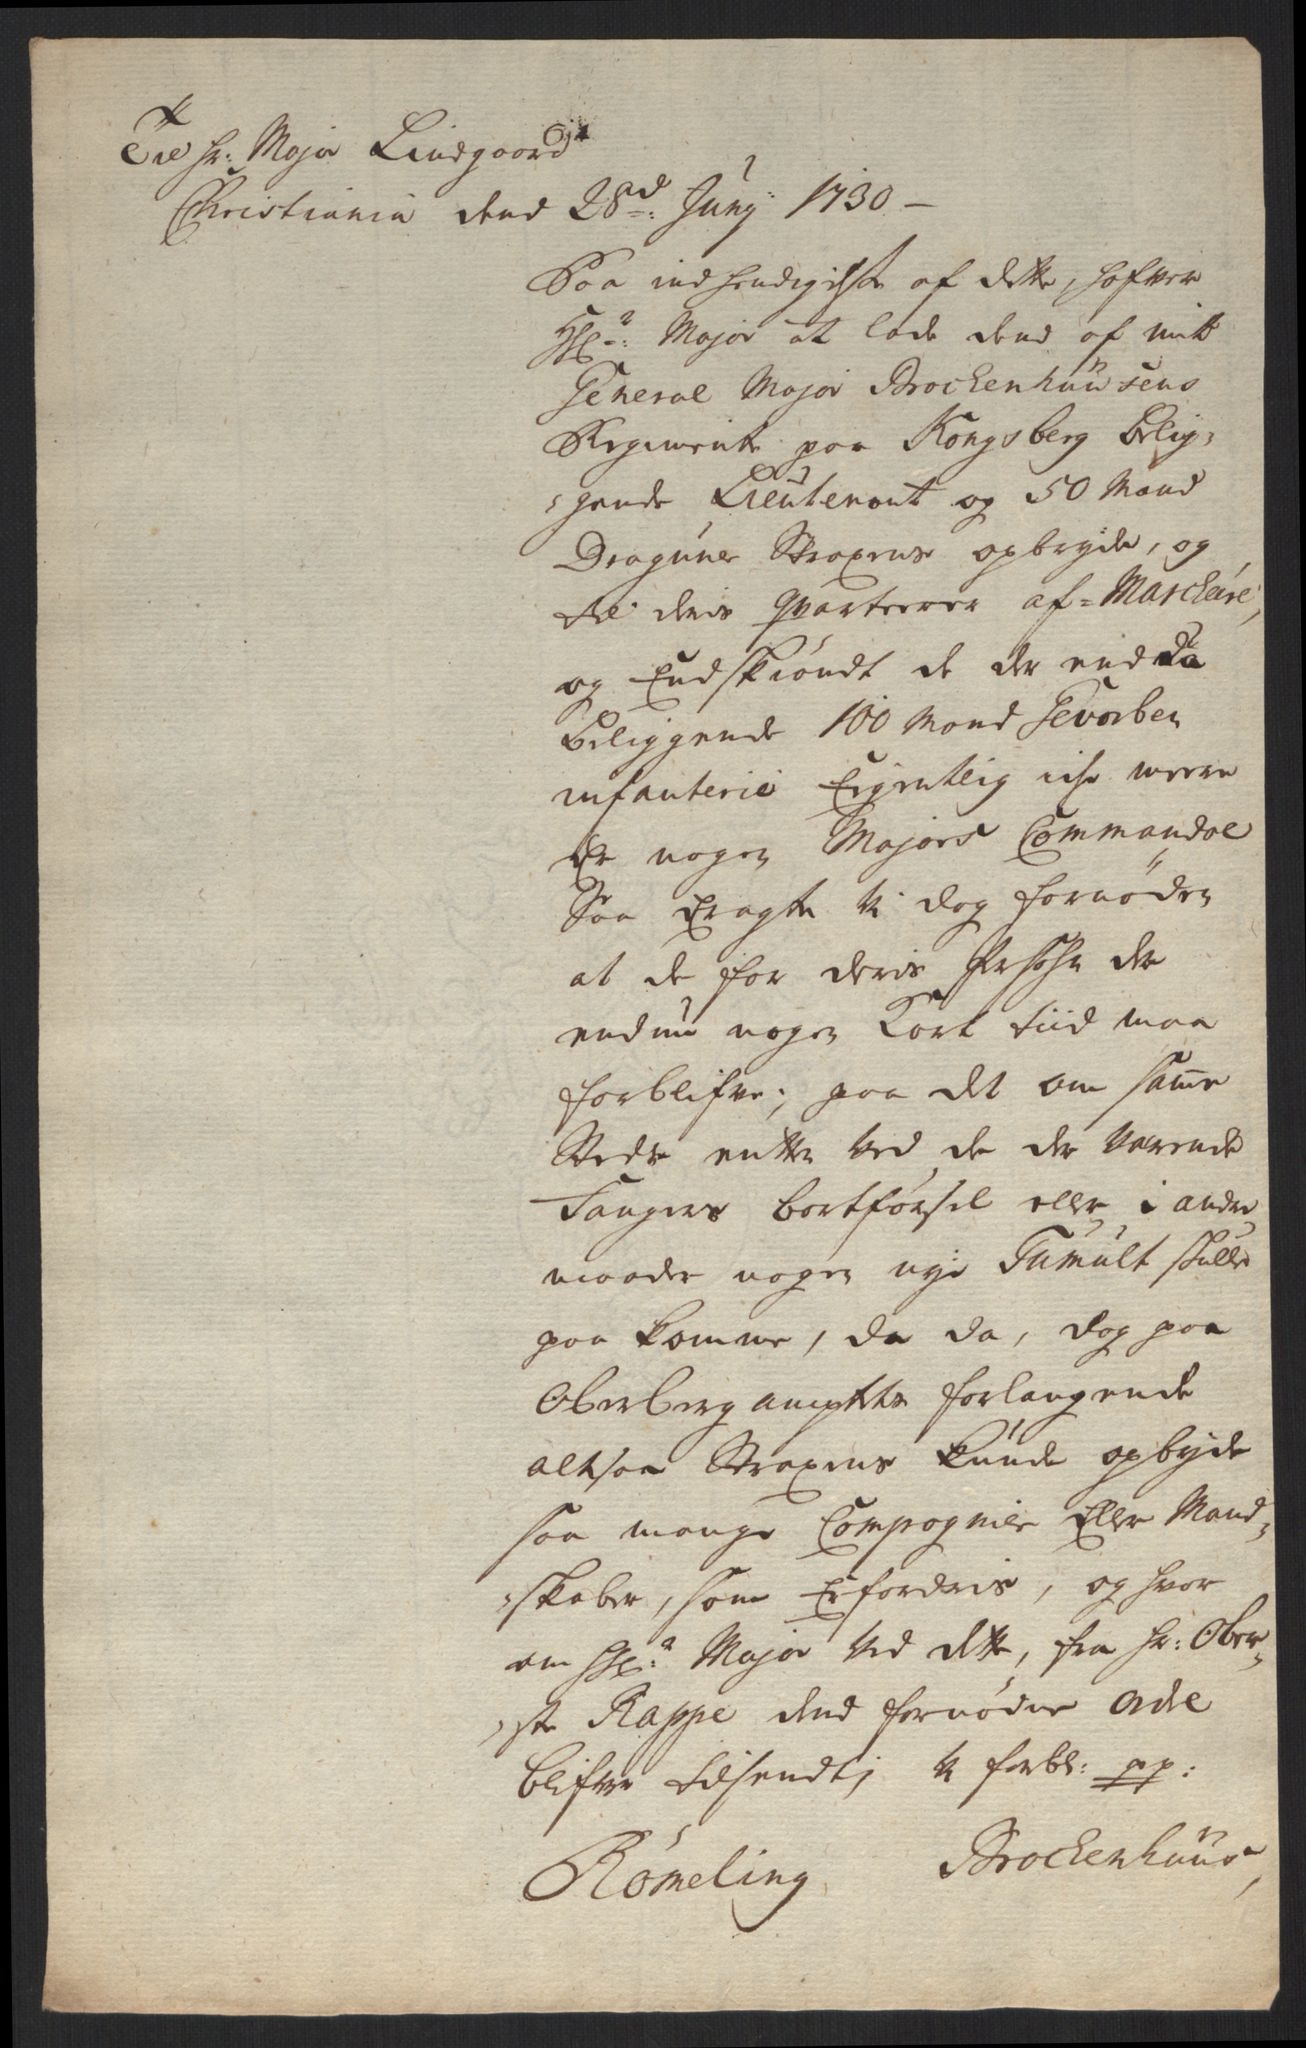 Til Hr: Major Lindgaard
Christiania dend 28d: Junj 1730 —
Paa indhendigelse af dette, hafver
Major at lade dend af mitt
General Major Brockenhuusens
Regimente paa Kongsberg belig¬
gende Lieutenant og 50 Mand
Draguner Straxens opbryde, og
til deris qvarteerer af=Marchere,
og Endskiøndt de der endda
beliggende 100 Mand Gevorben
infanterie Eigentlig iche were
der nogen Majors Commando
Saa Eragte Vi dog fornøden
at de for deris Persohn der
endnu nogen Kort tiid maa
forblifve; paa det om samme
Steds enten Ved de der Værende
Fangers bortførsel eller i andre
maader nogen nye Tumult skulle
paa komme, da da, dog paa
Oberberg amptets forlangende
altsaa Straxens kunde opbyde
saa mange Compagnier Eller Mand¬
skaber, som Erfordris, og hvor
om Major Ved dette, fra Hr: Ober¬
ste Rappe dend fornødne Ordre
blifver tilsendt; Vi forbl: pp:
Rømeling Brockenhuus